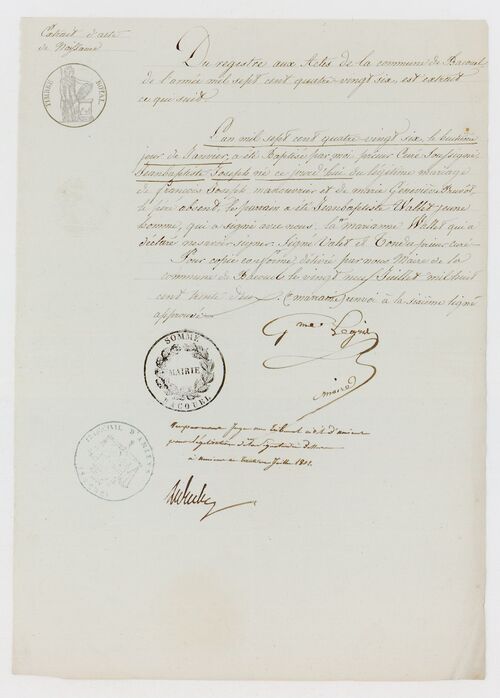 Extrait d'acte
de Naissance
TIMBRE ROYAL
Du registre aux Actes de la commune de Bacouel
de l'année mil sept cent quatre vingt six, est extrait
ce qui suit.
L'an mil sept cent quatre vingt six, le huitième
jour de Janvier, a été Baptisé par moi prieur Curé Soussigné
Jeanbaptiste Joseph né ce jourd'hui du légitime mariage
de françois Joseph et de marie Geneviève
le père absent, le parrain a été Jeanbaptiste Wallet jeune
homme, qui a signé avec nous, la mne marianne Wallet qui a
déclaré ne savoir signer. Signé Valet et prieur curé
Pour copie conforme délivré par nous Maire de la
commune de Bacouel le vingt neuf Juillet mil huit
cent trente renvoi à la sixième ligne
approuvé
Gme
maire
SOMME
MAIRIE
BACOUEL
Vu par nous Juge au tribunal civil d'amiens
pour légalisation de la signature
à amiens le Juillet